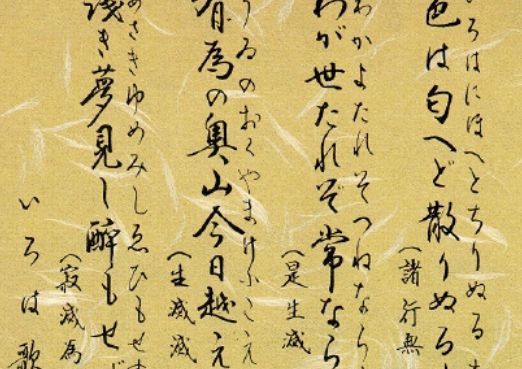 いろはにほへとちりぬる
色は匂へど散りぬる
(諸行無
わかよたれそつねなら
わが世たれぞ常なら
(是生滅
うゐのおくやまけふこえ
有為の奥山今日越え
(生滅滅
あさきゆめみしゑひもせ
浅き夢見し酔もせ
(寂滅為
いろは歌